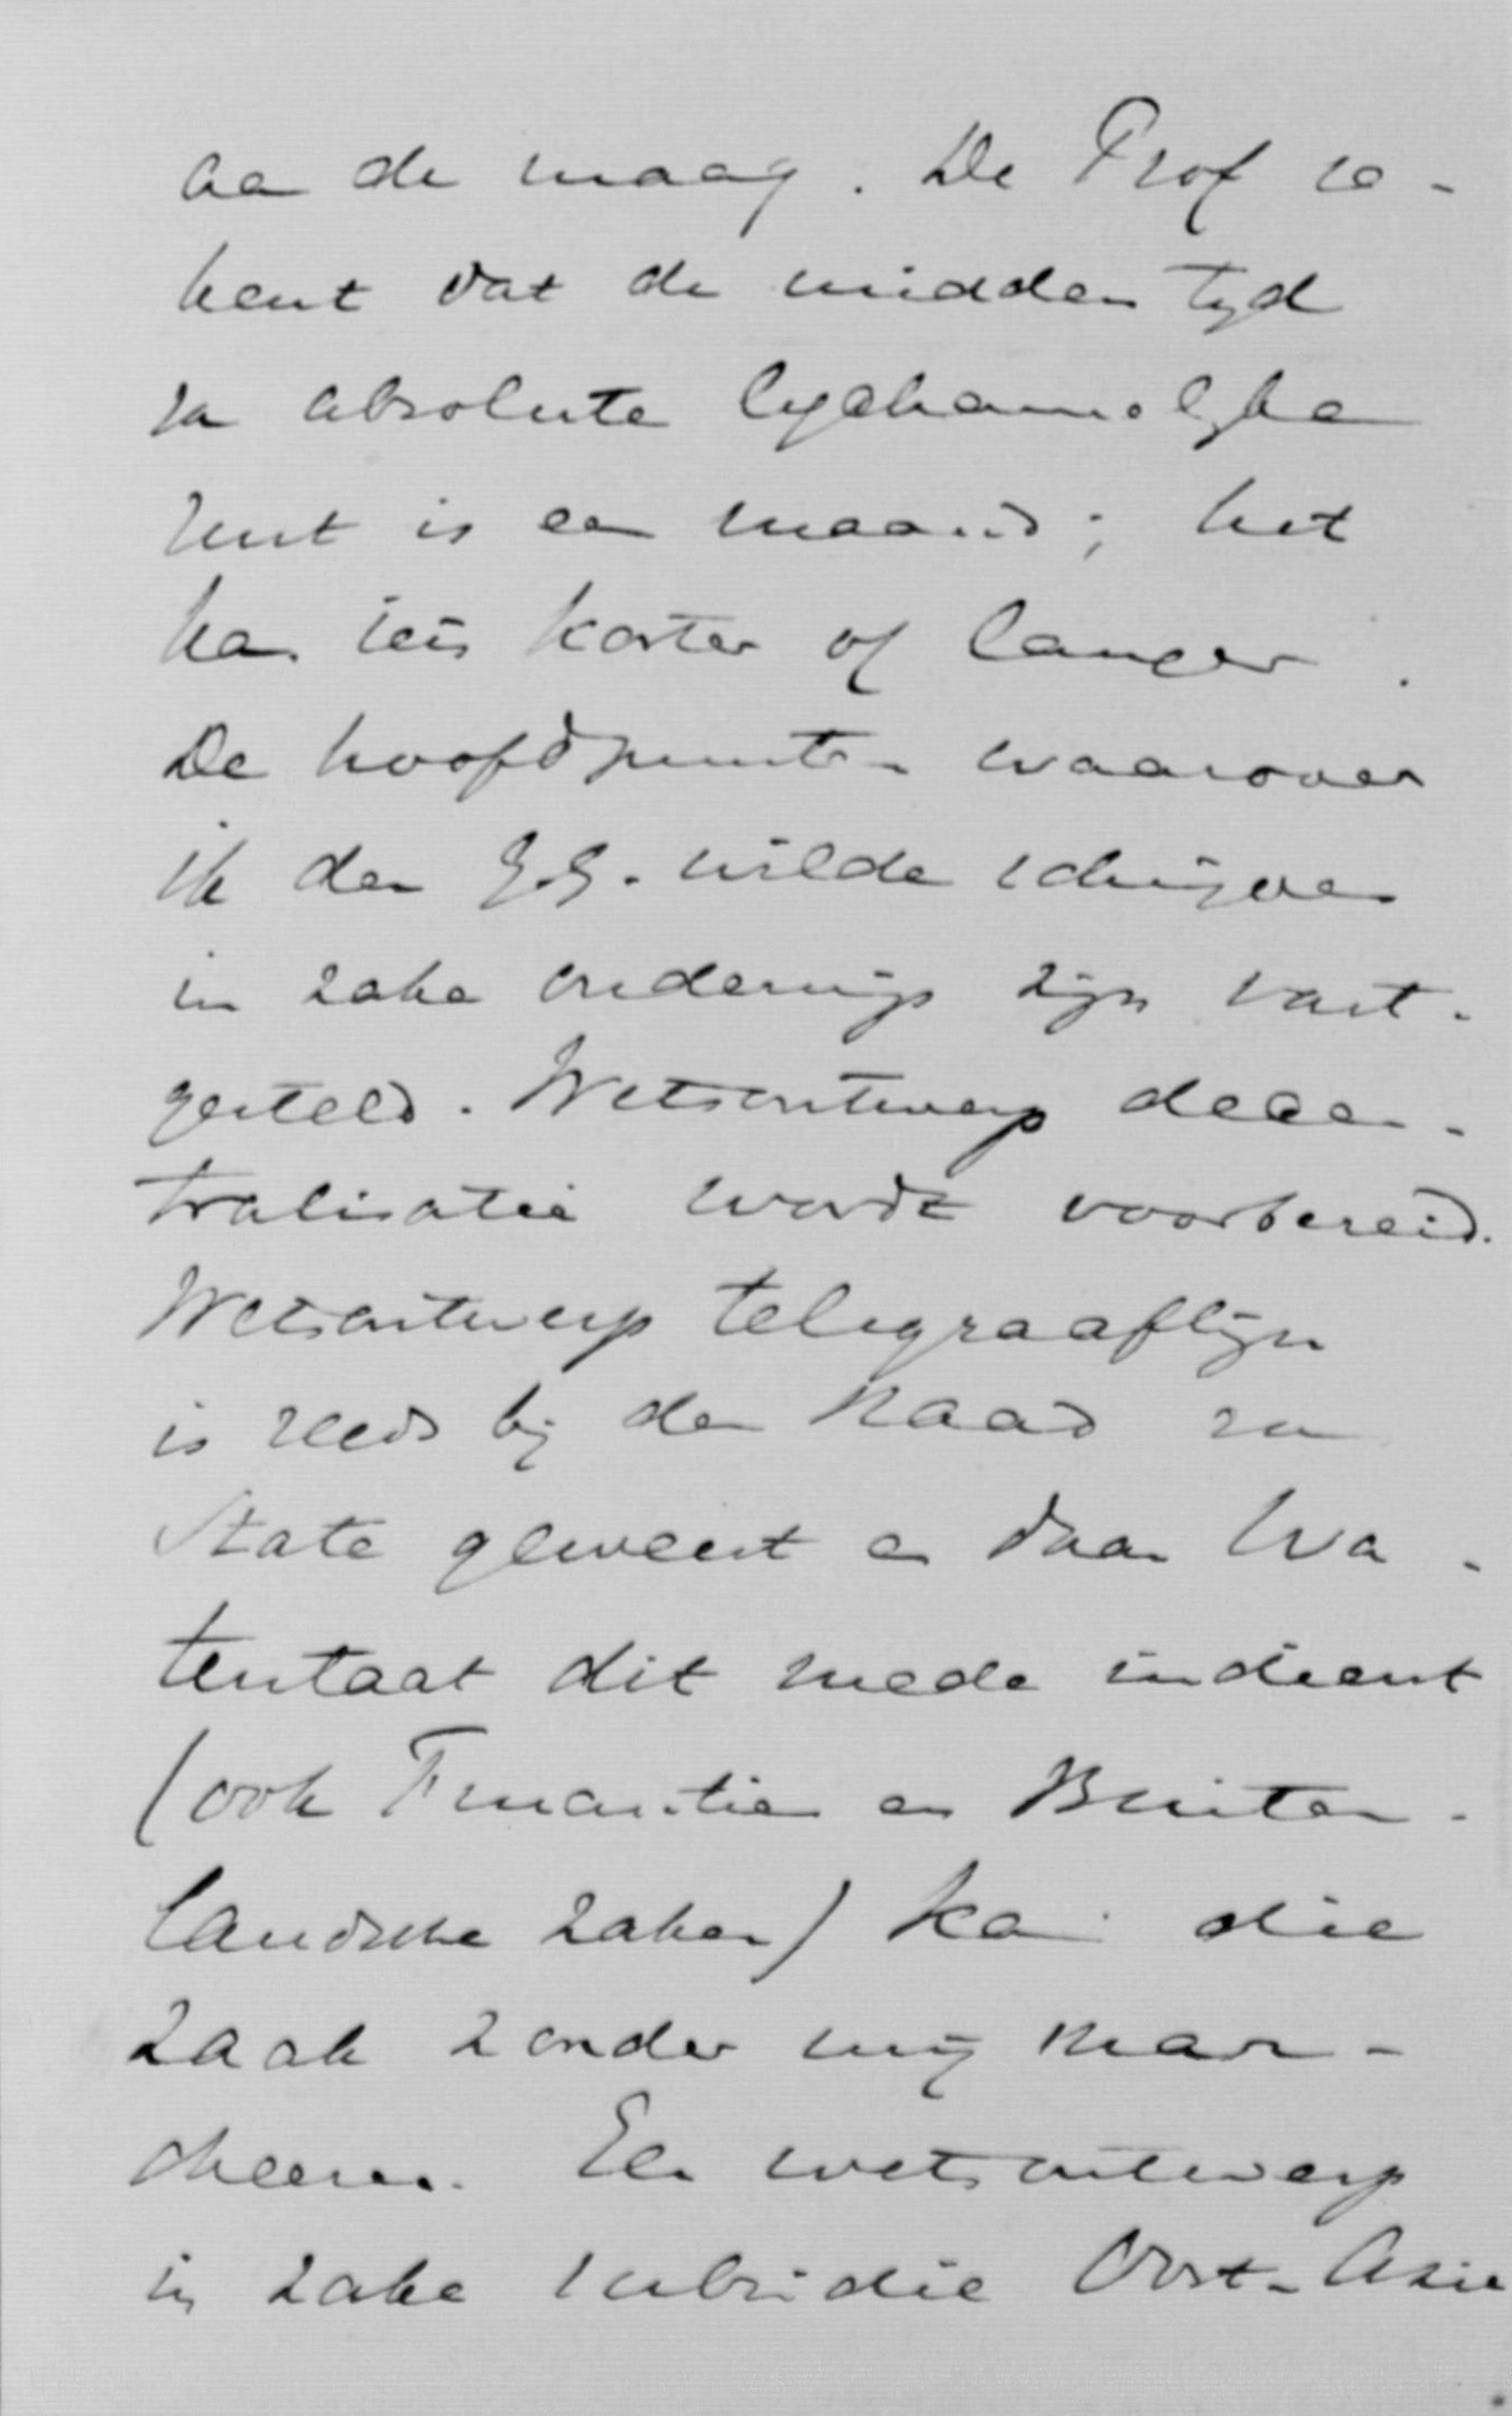 aan de maag. De Prof re-
kent dat de midden tyd
van absolute lychamelyke
rust is een maand; het
kan iets korter of langer.
De hoofdpunten waarover
ik den G.G. wilde schrijven
in zake onderwijs zijn vast-
gesteld. Wetsontwerp decen-
tralisatie wordt voorbereid.
Wetsontwerp telegraaflijn
is reeds bij den Raad van
State geweest en daar Wa-
terstaat dit mede indient
(ook Financiën en Buiten-
landsche Zaken) kan die
zaak zonder mij mar-
cheeren. Een wetsontwerp
in zake subsidie Oost-Azie